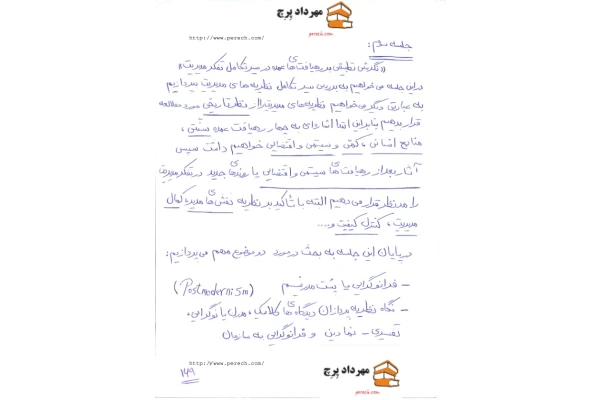 مهرداد پرچ
perech.com
http://www.perech.com/
جلسه سوم:
«نگرش تطبیقی بر رهیافت‌های عمده در سیر تکامل تفکر مدیریت»
در این جلسه می‌خواهیم به بررسی سیر تکامل نظریه‌های مدیریت بپردازیم
به عبارتی دیگر می‌خواهیم نظریه‌های مدیریت را از نظر تاریخی مورد مطالعه
قرار بدهیم بنابراین ابتدا اشاره‌ای به چهار رهیافت عمده سنتی،
منابع انسانی، کمّی و سیستمی و اقتضایی خواهیم داشت سپس
آثار بعد از رهیافت‌های سیستمی و اقتضایی یا روندهای جدید در تفکر مدیریت
را مدنظر قرار می‌دهیم البته با تأکید بر نظریه نقش‌های مدیر، کمال
مدیریت، کنترل کیفیت و....
در پایان این جلسه به بحث در مورد دو موضوع مهم می‌پردازیم:
- فرانوگرایی یا پست مدرنیسم (Postmodernism)
- نگاه نظریه پردازان دیدگاه‌های کلاسیک، مدرن یا نوگرایی،
تفسیری - نمادین و فرانوگرایی به سازمان
http://www.perech.com/
۱۴۹
مهرداد پرچ
perech.com